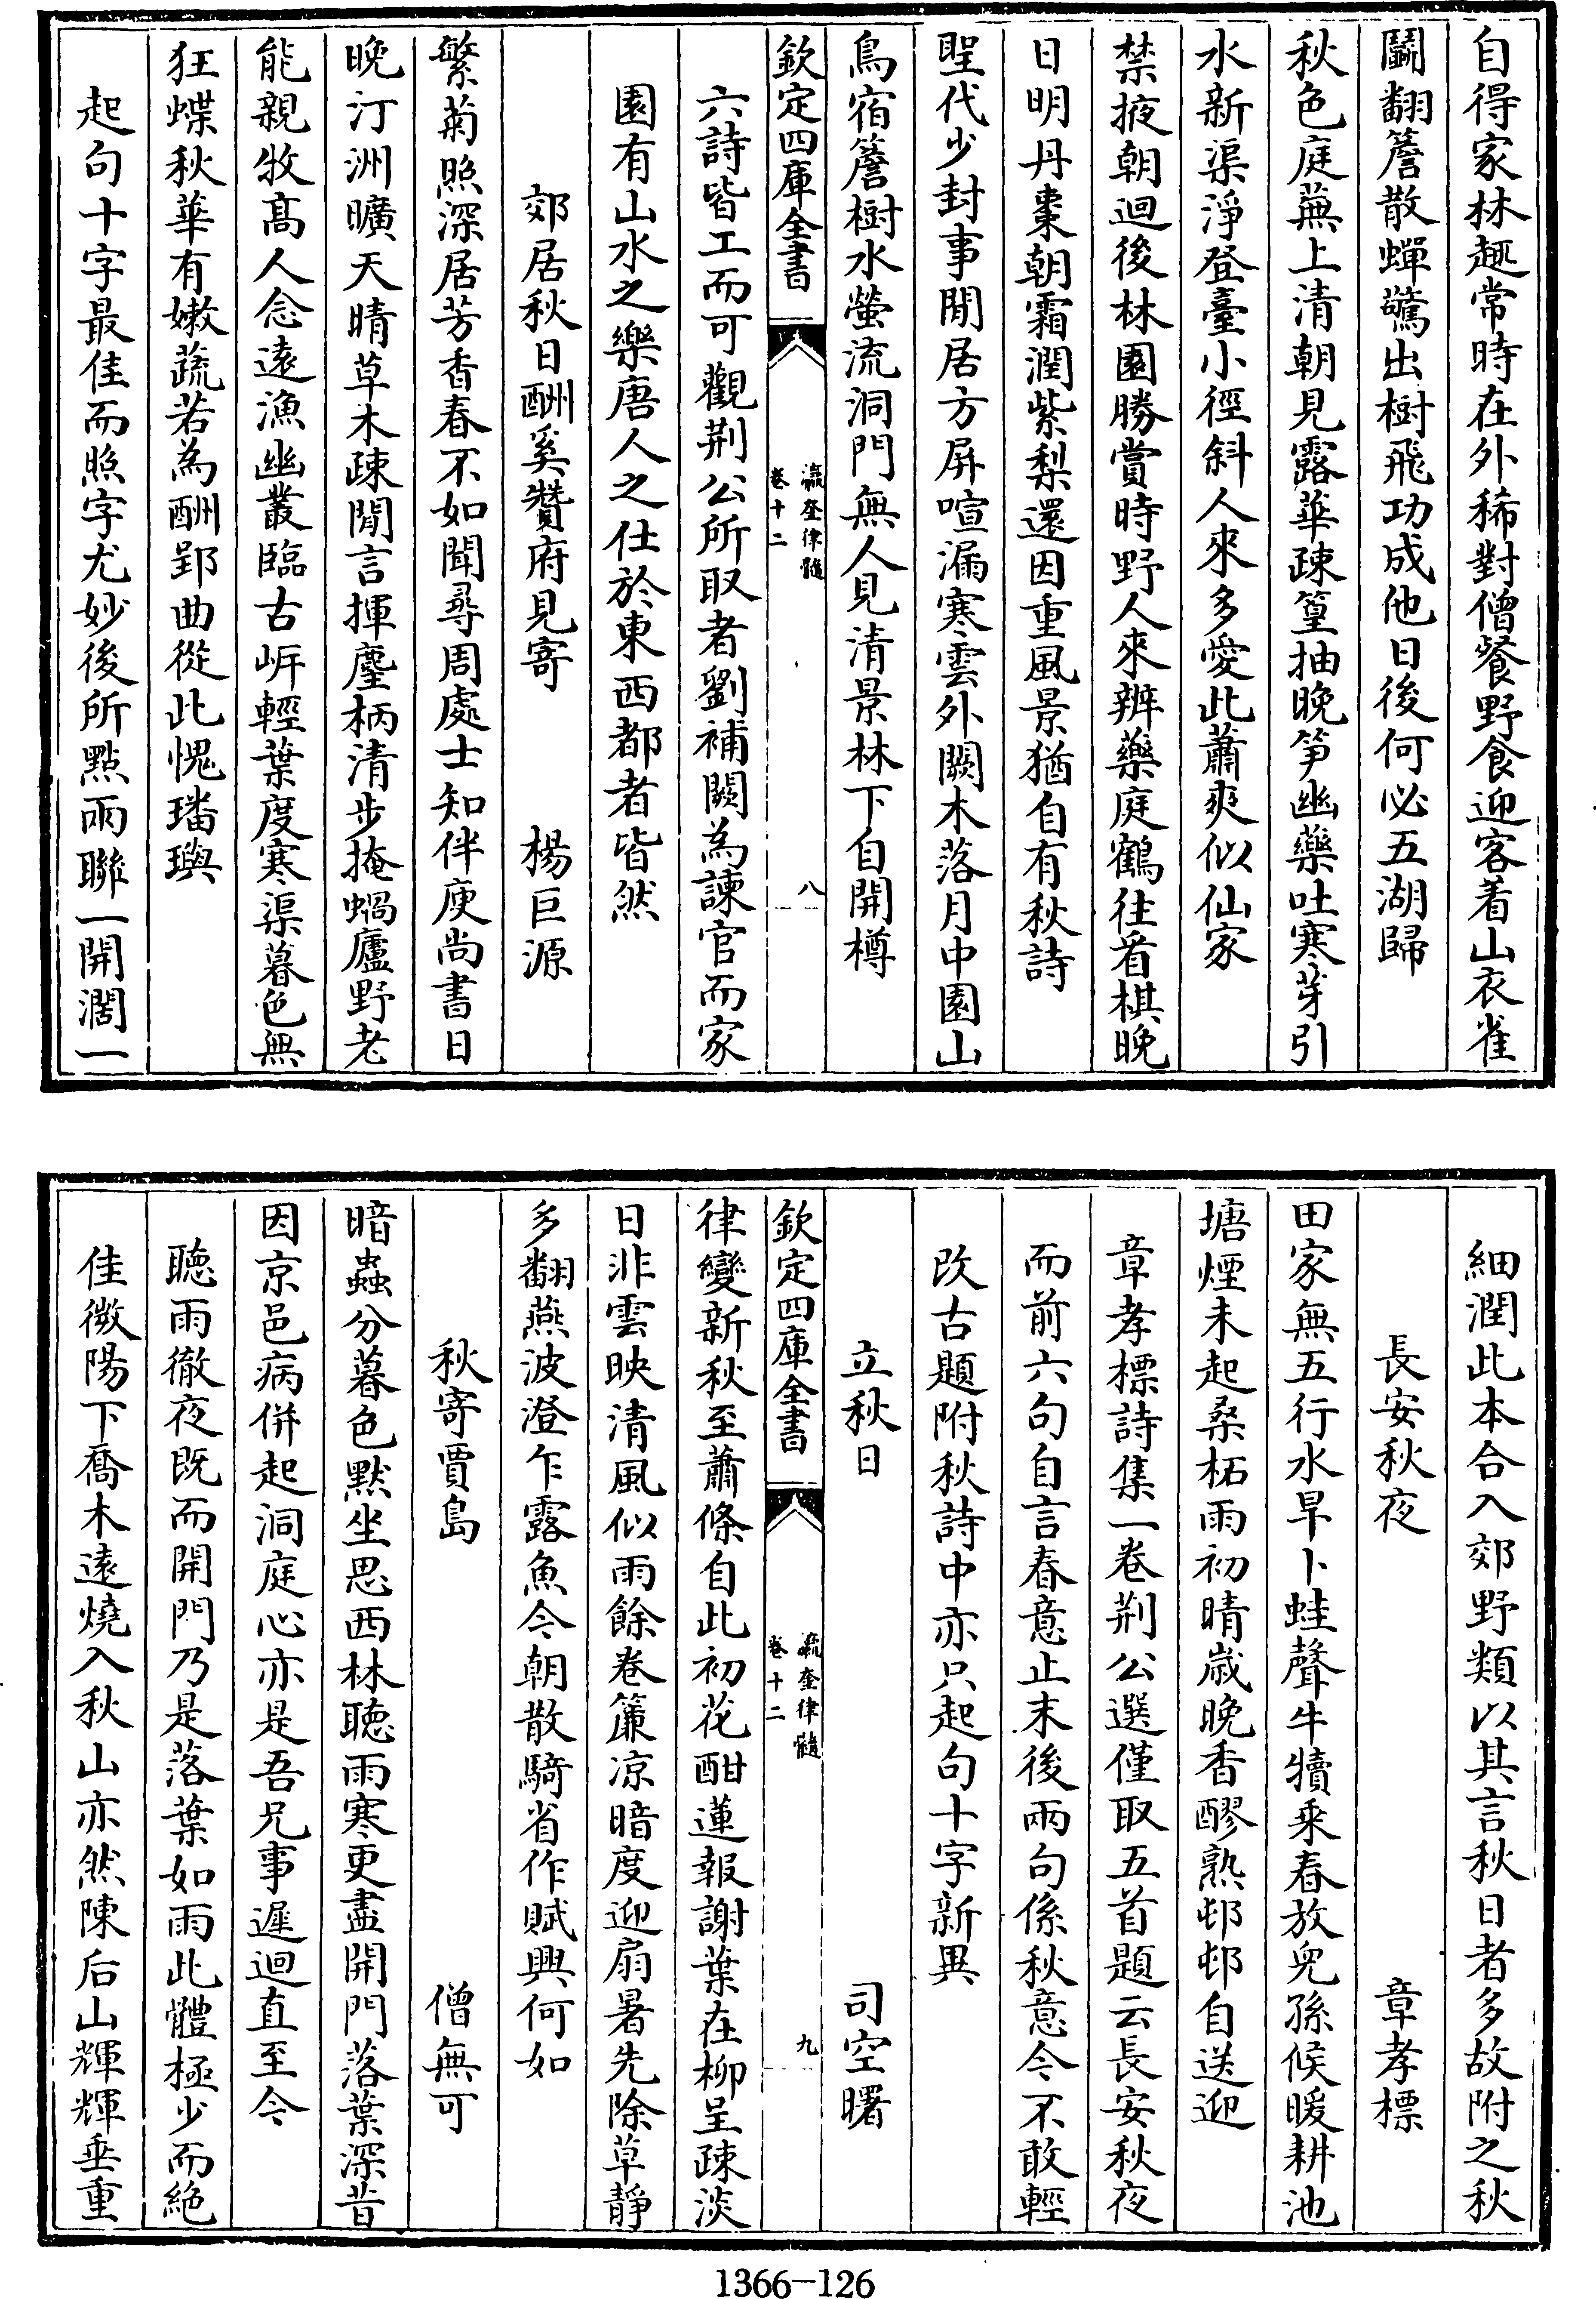 自得家林趣常時在外稀對僧餐野食迎客着山衣雀
鬭翻簷散蟬驚出樹飛功成他日後何必五湖歸
秋色庭蕪上清朝見露華疎篁抽晚笋幽藥吐寒芽引
水新渠淨登臺小徑斜人來多愛此蕭爽似仙家
禁掖朝迴後林園勝賞時野人來辨藥庭鶴往看棋晚
日明丹棗朝霜潤紫梨還因重風景猶自有秋詩
聖代少封事閒居方屏喧漏寒雲外闕木落月中園山
鳥宿簷樹水螢流洞門無人見清景林下自開樽
欽定四庫全書
瀛奎律髓
卷十二
八
六詩皆工而可觀荆公所取者劉補闕為諫官而家
園有山水之樂唐人之仕於東西都者皆然
郊居秋日酬奚贊府見寄 楊巨源
繁菊照深居芳香春不如聞尋周處士知伴庾尚書日
晚汀洲曠天晴草木疎閒言揮麈柄清步掩蝸廬野老
能親牧髙人念遠漁幽叢臨古岍輕葉度寒渠暮色無
狂蝶秋華有嫩蔬若為酬郢曲從此愧璠璵
起句十字最佳而照字尤妙後所㸃兩聯一開濶一
細潤此本合入郊野類以其言秋日者多故附之秋
長安秋夜 章孝標
田家無五行水旱卜蛙聲牛犢乘春放兒孫候暖耕池
塘煙未起桑柘雨初晴歲晚香醪熟邨邨自送迎
章孝標詩集一卷荆公選僅取五首題云長安秋夜
而前六句自言春意止末後兩句係秋意今不敢輕
改古題附秋詩中亦只起句十字新異
立秋日 司空曙
欽定四庫全書
瀛奎律髓
卷十二
九
律變新秋至蕭條自此初花酣蓮報謝葉在柳呈疎淡
日非雲映清風似雨餘卷簾凉暗度迎扇暑先除草靜
多翻燕波澄乍露魚今朝散騎省作賦興何如
秋寄賈島 僧無可
暗蟲分暮色默坐思西林聽雨寒更盡開門落葉深昔
因京邑病併起洞庭心亦是吾兄事遲迴直至今
聽雨徹夜既而開門乃是落葉如雨此體極少而絶
佳微陽下喬木遠燒入秋山亦然陳后山輝輝垂重
1366-126